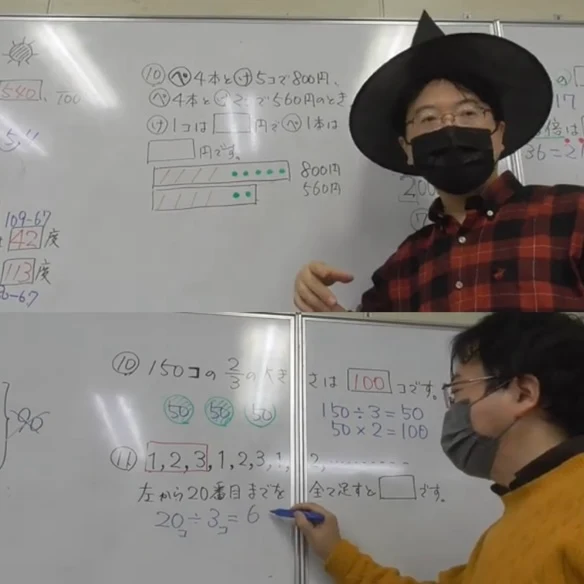 540、
⑩ ㋬4本と㋘5コで800円、
㋬4本と㋘2コで560円のとき
㋘1コは□円で㋬1本は
□円です。
800円
560円
109-67
42度
113度
17
36=21
⑩ 150コの2/3の大きさは100コです。
50 50 50
150÷3=50
50×2=100
⑪ 1,2,3,1,2,3,1,2,………
左から20番目までを全て足すと□です。
20コ÷3コ=6